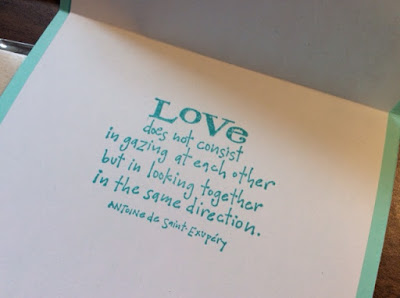 LOVe
does not consist
in gazing at each other
but in looking together
in the same direction.
ANTOINE de SAINT-EXUPÉRY